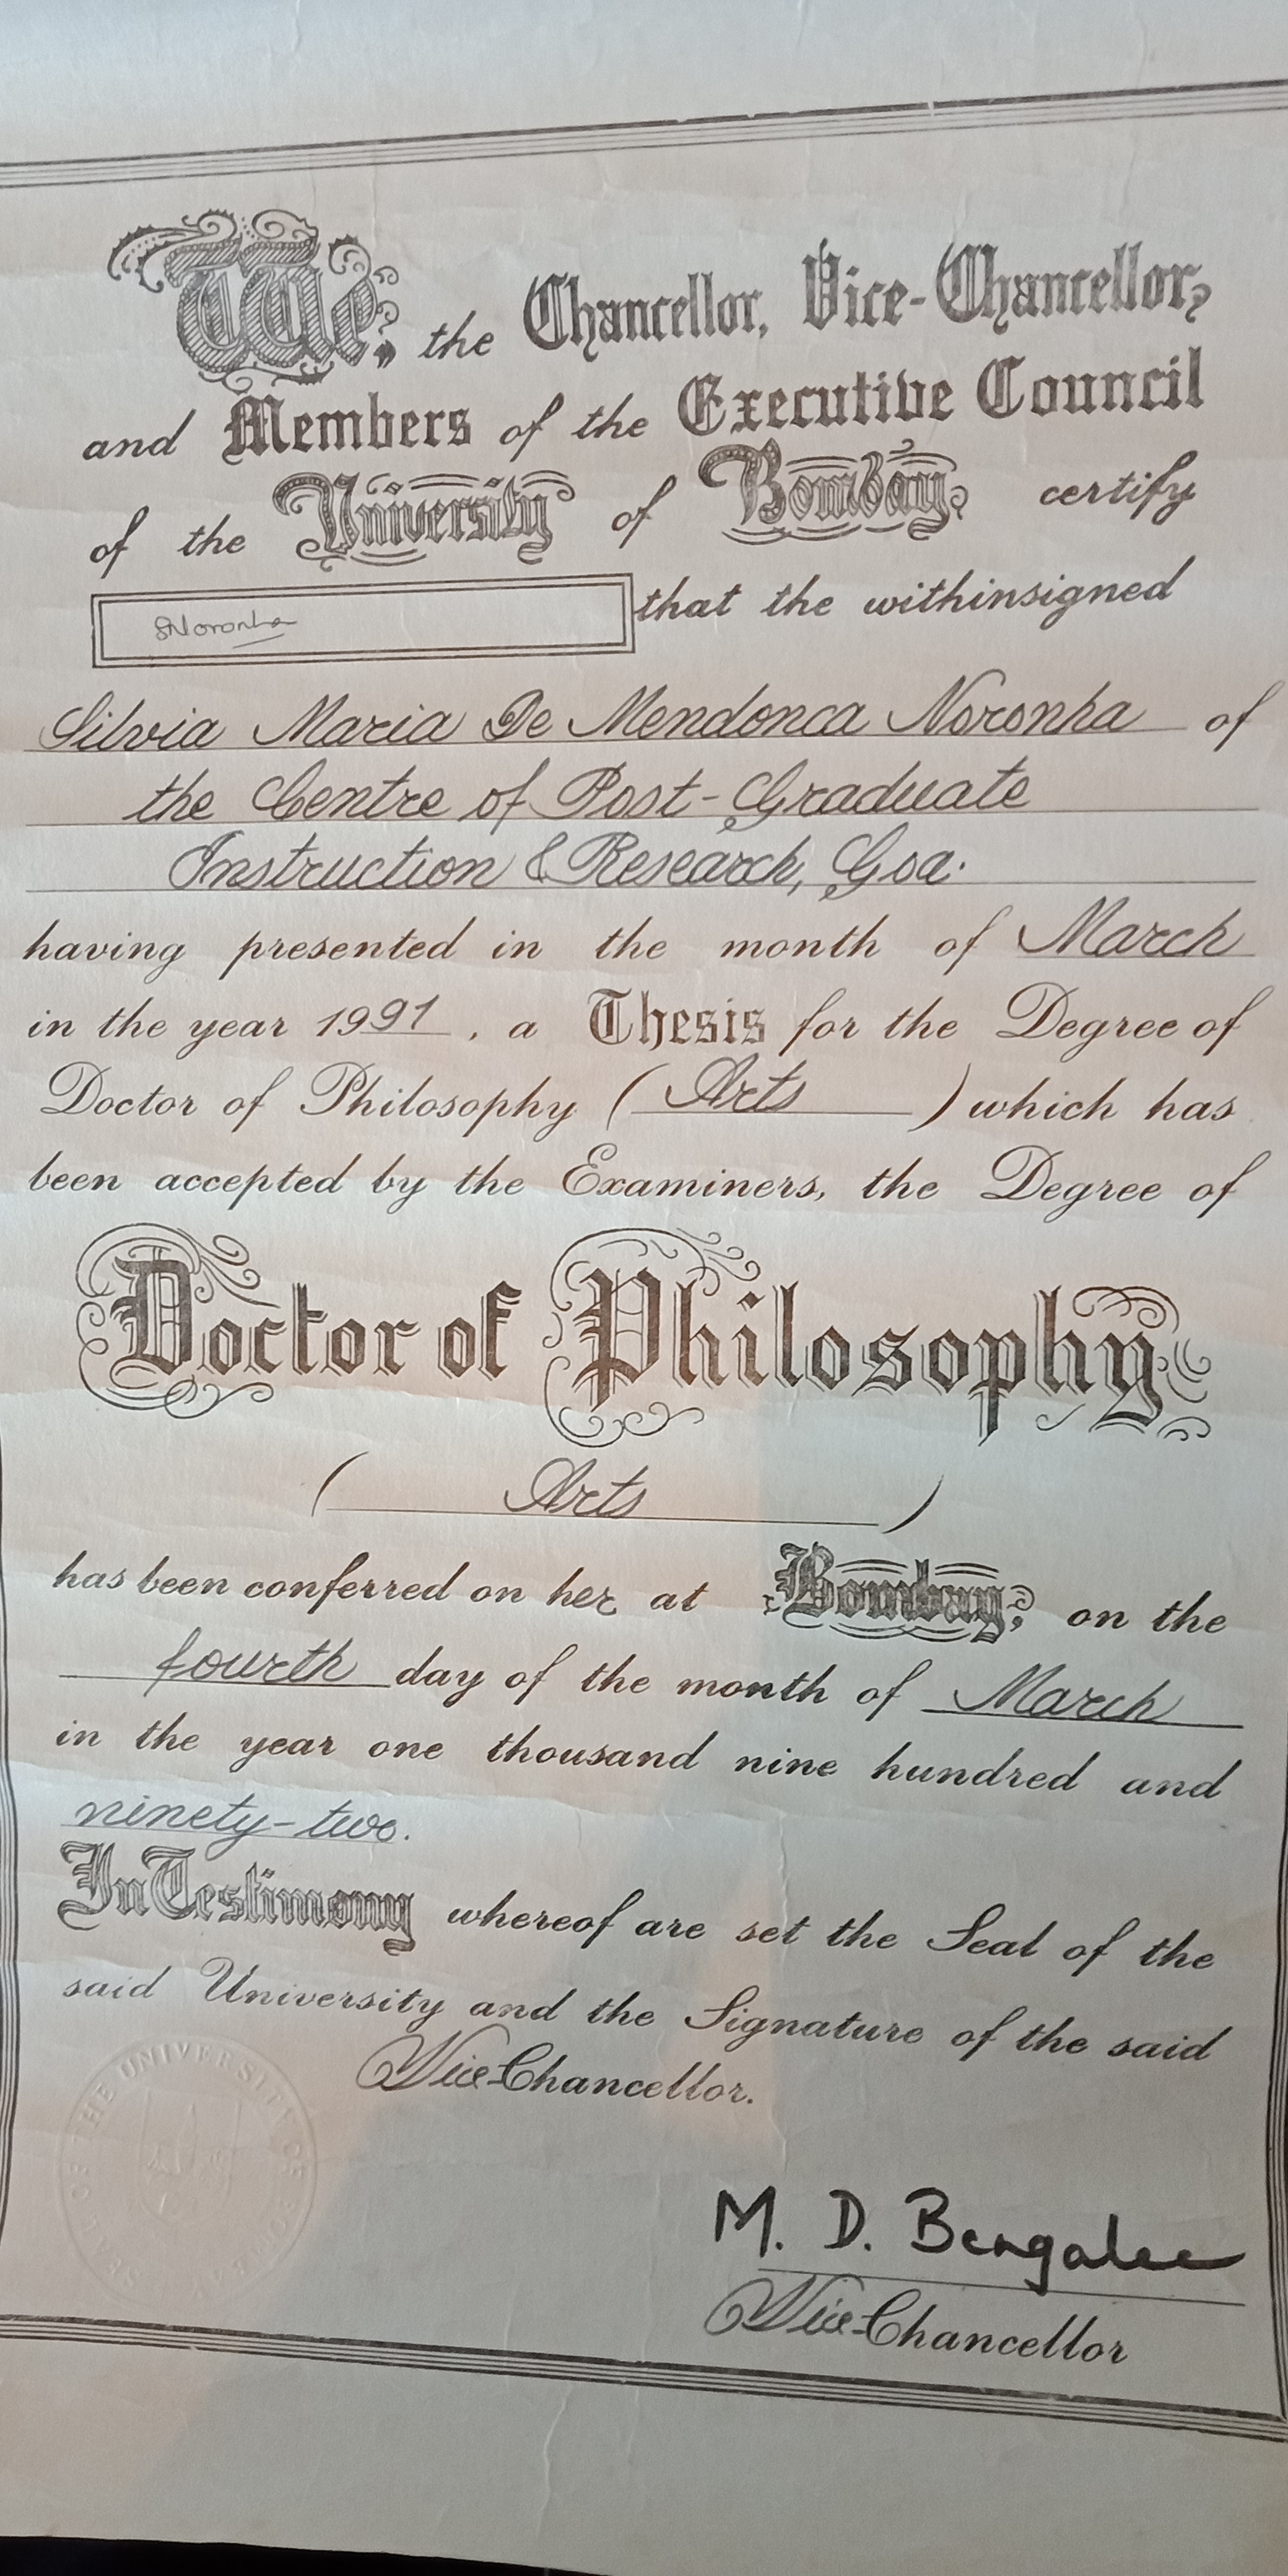 We, the Chancellor, Vice-Chancellor,
and Members of the Executive Council
of the University of Bombay, certify
SNoronha that the withinsigned
Silvia Maria De Mendonca Noronha of
the Centre of Post-Graduate
Instruction & Research, Goa.
having presented in the month of March
in the year 1991, a Thesis for the Degree of
Doctor of Philosophy (Arts) which has
been accepted by the Examiners, the Degree of
Doctor of Philosophy
(Arts)
has been conferred on her at Bombay, on the
fourth day of the month of March
in the year one thousand nine hundred and
ninety-two.
In Testimony whereof are set the Seal of the
said University and the Signature of the said
Vice-Chancellor.
SEAL OF THE UNIVERSITY OF BOMBAY
M. D. Bengalee
Vice-Chancellor